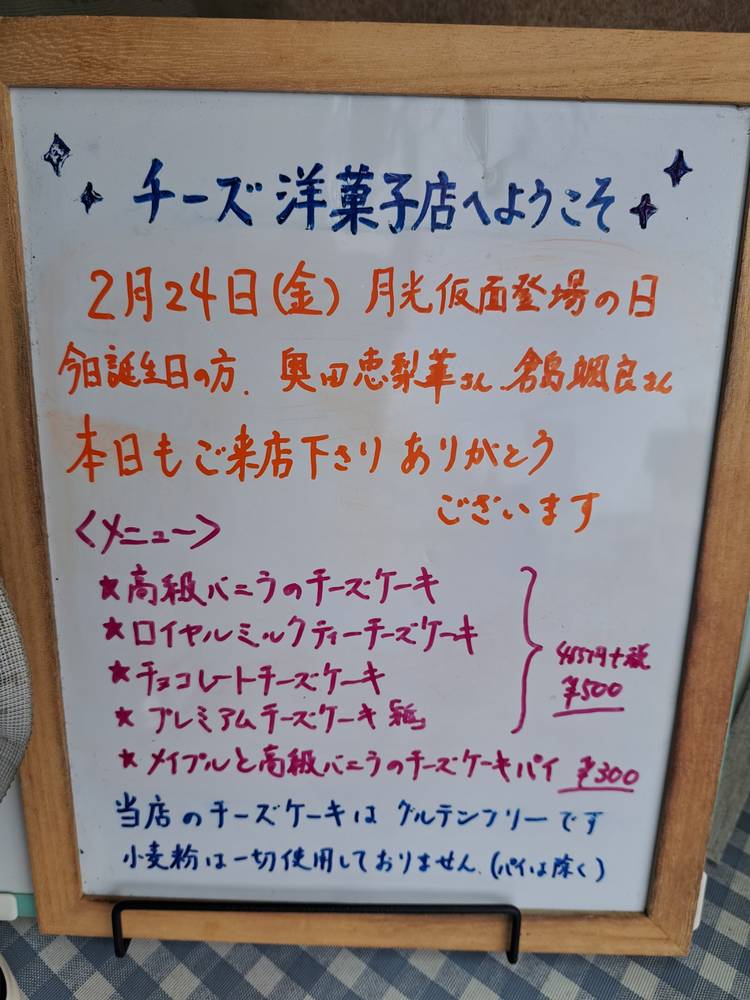 チーズ洋菓子店へようこそ
2月24日(金) 月光仮面登場の日
今日誕生日の方、奥田恵梨華さん、倉島颯良さん
本日もご来店下さり ありがとう
ございます
<メニュー>
★高級バニラのチーズケーキ
★ロイヤルミルクティーチーズケーキ
★チョコレートチーズケーキ
★プレミアムチーズケーキ
円+税
¥500
★メイプルと高級バニラのチーズケーキパイ ¥300
当店のチーズケーキは グルテンフリーです
小麦粉は一切使用しておりません。(パイは除く)